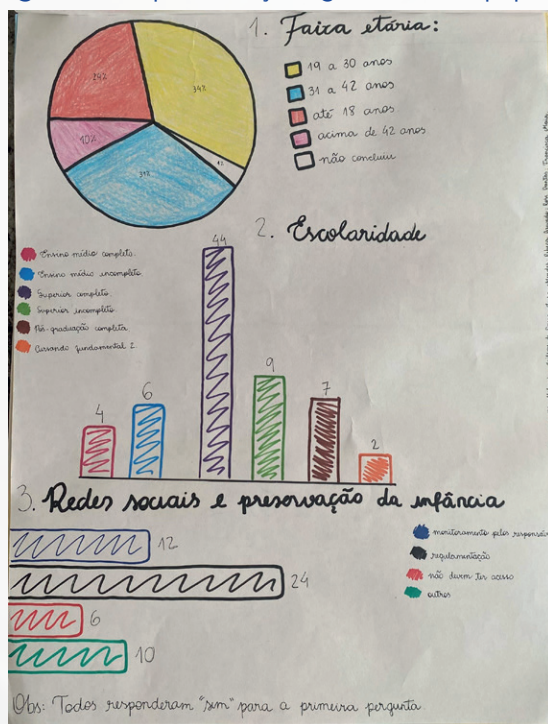 1. Faixa etária:
19 a 30 anos
31 a 42 anos
até 18 anos
acima de 42 anos
não concluiu
24%
34%
10%
31%
2. Escolaridade
Ensino médio completo.
Ensino médio incompleto.
Superior completo.
Superior incompleto
Pós-graduação completa
Cursando fundamental 2
4
6
44
9
7
2
3. Redes sociais e preservação da infância
monitoramento pelos
regulamentação
não devem ter acesso
outros
12
24
6
10
Obs: Todos responderam "sim" para a primeira pergunta.